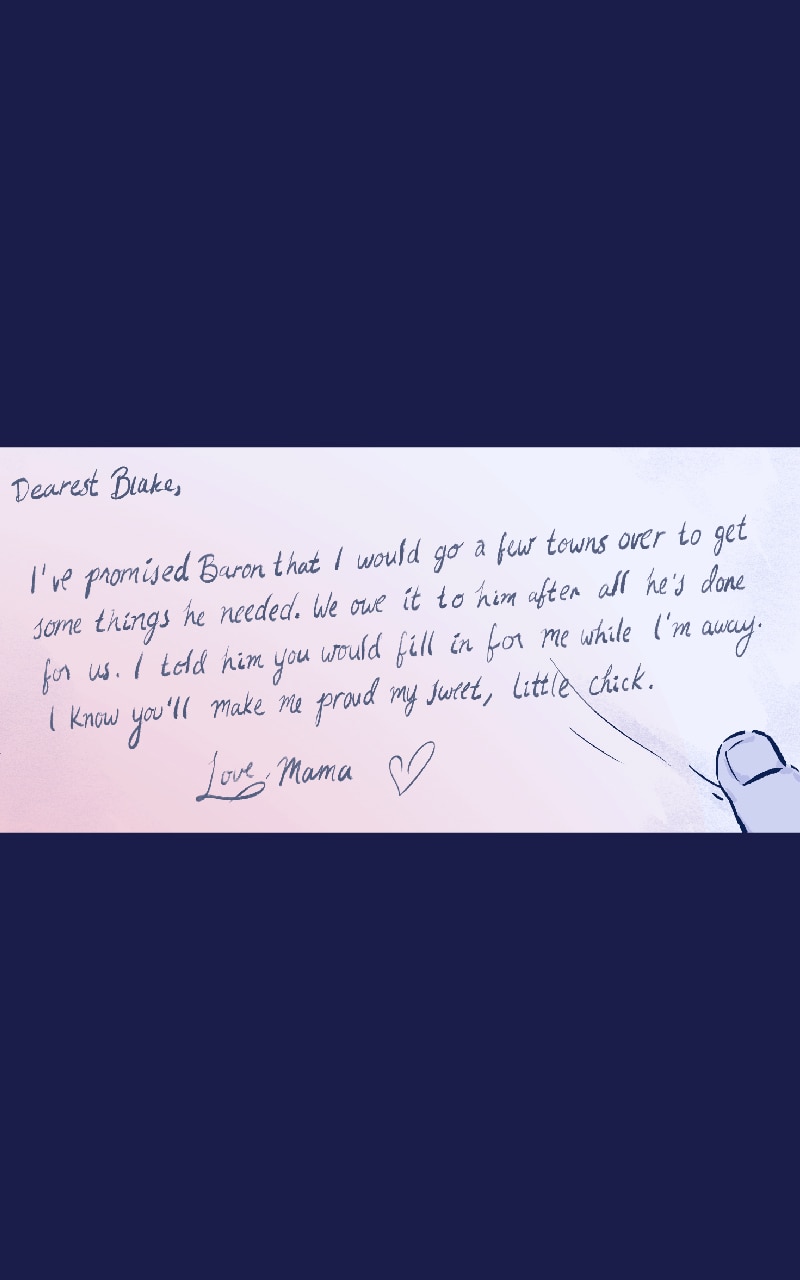 Dearest Blake,
I've promised Baron that I would go a few towns over to get
some things he needed. We owe it to him after all he's done
for us. I told him you would fill in for me while I'm away.
I know you'll make me proud my sweet, little chick.
Love, Mama